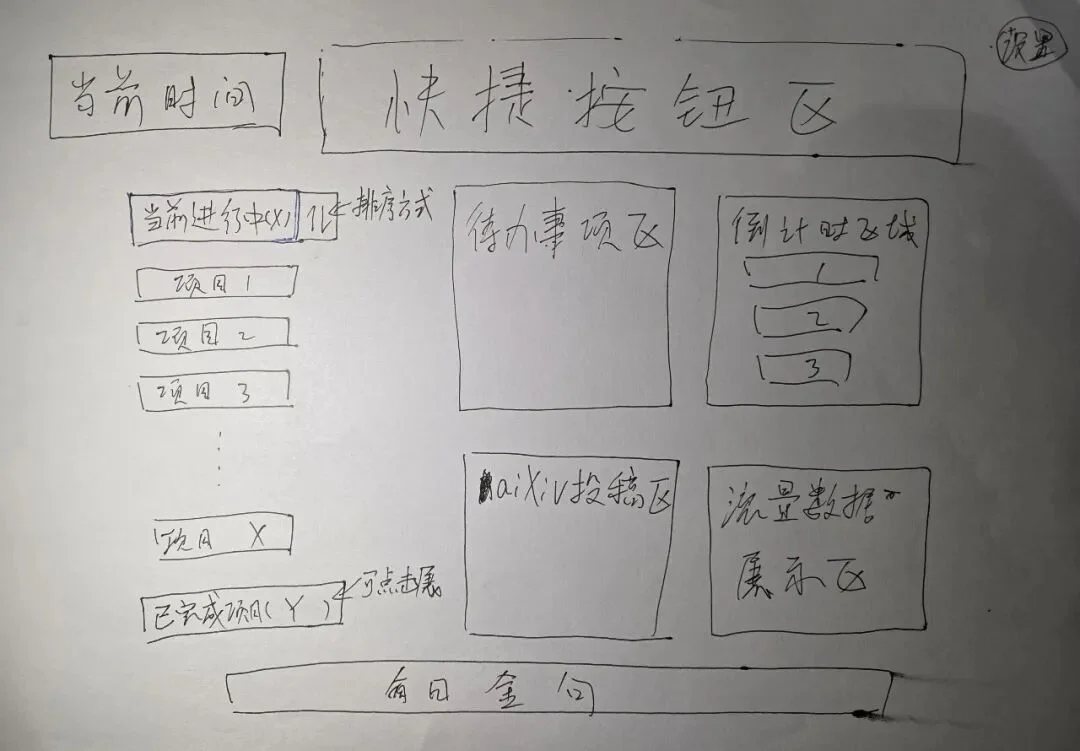 当前时间
快捷按钮区
设置
当前进行中(X) ↑↓
排序方式
项目 1
项目 2
项目 3
项目 X
已完成项目(Y)
可点击展
待办事项区
倒计时区域
1
2
3
aiXiv投稿区
流量数据
展示区
每日金句